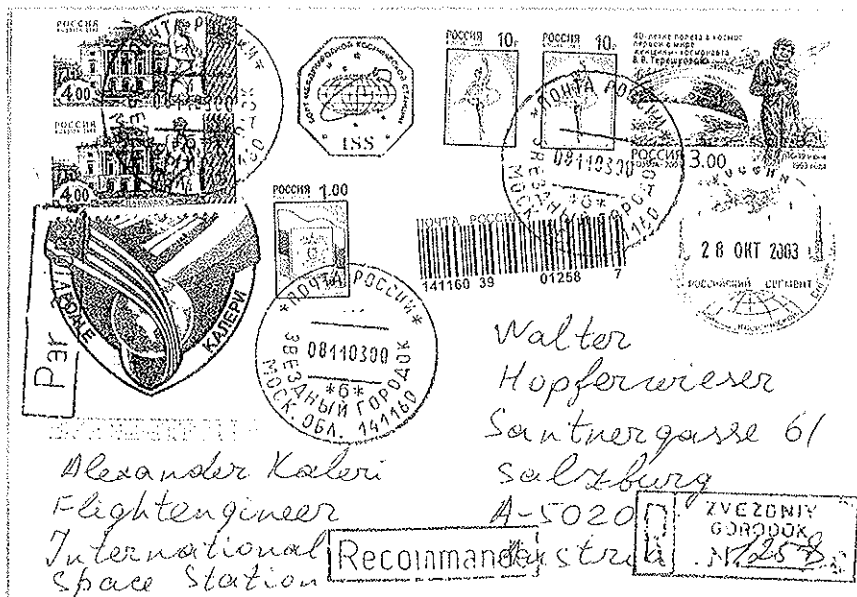 РОССИЯ
4.00
РОССИЯ
4.00
БОРТ МЕЖДУНАРОДНОЙ КОСМИЧЕСКОЙ СТАНЦИИ
ISS
РОССИЯ 10р
РОССИЯ 10р
40-летие полета в космос
первой в мире
женщины-космонавта
В.В. Терешковой
РОССИЯ 3.00
РОССИЯ 1.00
*ПОЧТА РОССИИ*
0811030
*ПОЧТА РОССИИ*
08110300
*б*
ЗВЕЗДНЫЙ ГОРОДОК
МОСК. 141160
ПОЧТА РОССИИ
141160 39 01258 7
28 ОКТ 2003
РОССИЙСКИЙ СЕГМЕНТ
*ПОЧТА РОССИИ*
08110300
*б*
ЗВЕЗДНЫЙ ГОРОДОК
МОСК. ОБЛ. 141160
КАЛЕРИ
Walter
Hopferwieser
Santnergasse 61
Salzburg
A-5020
Austria
Alexander Kaleri
Flightengineer
International
Space Station
Recommandé
ZVEZDNIY
GORODOK
№ 1258